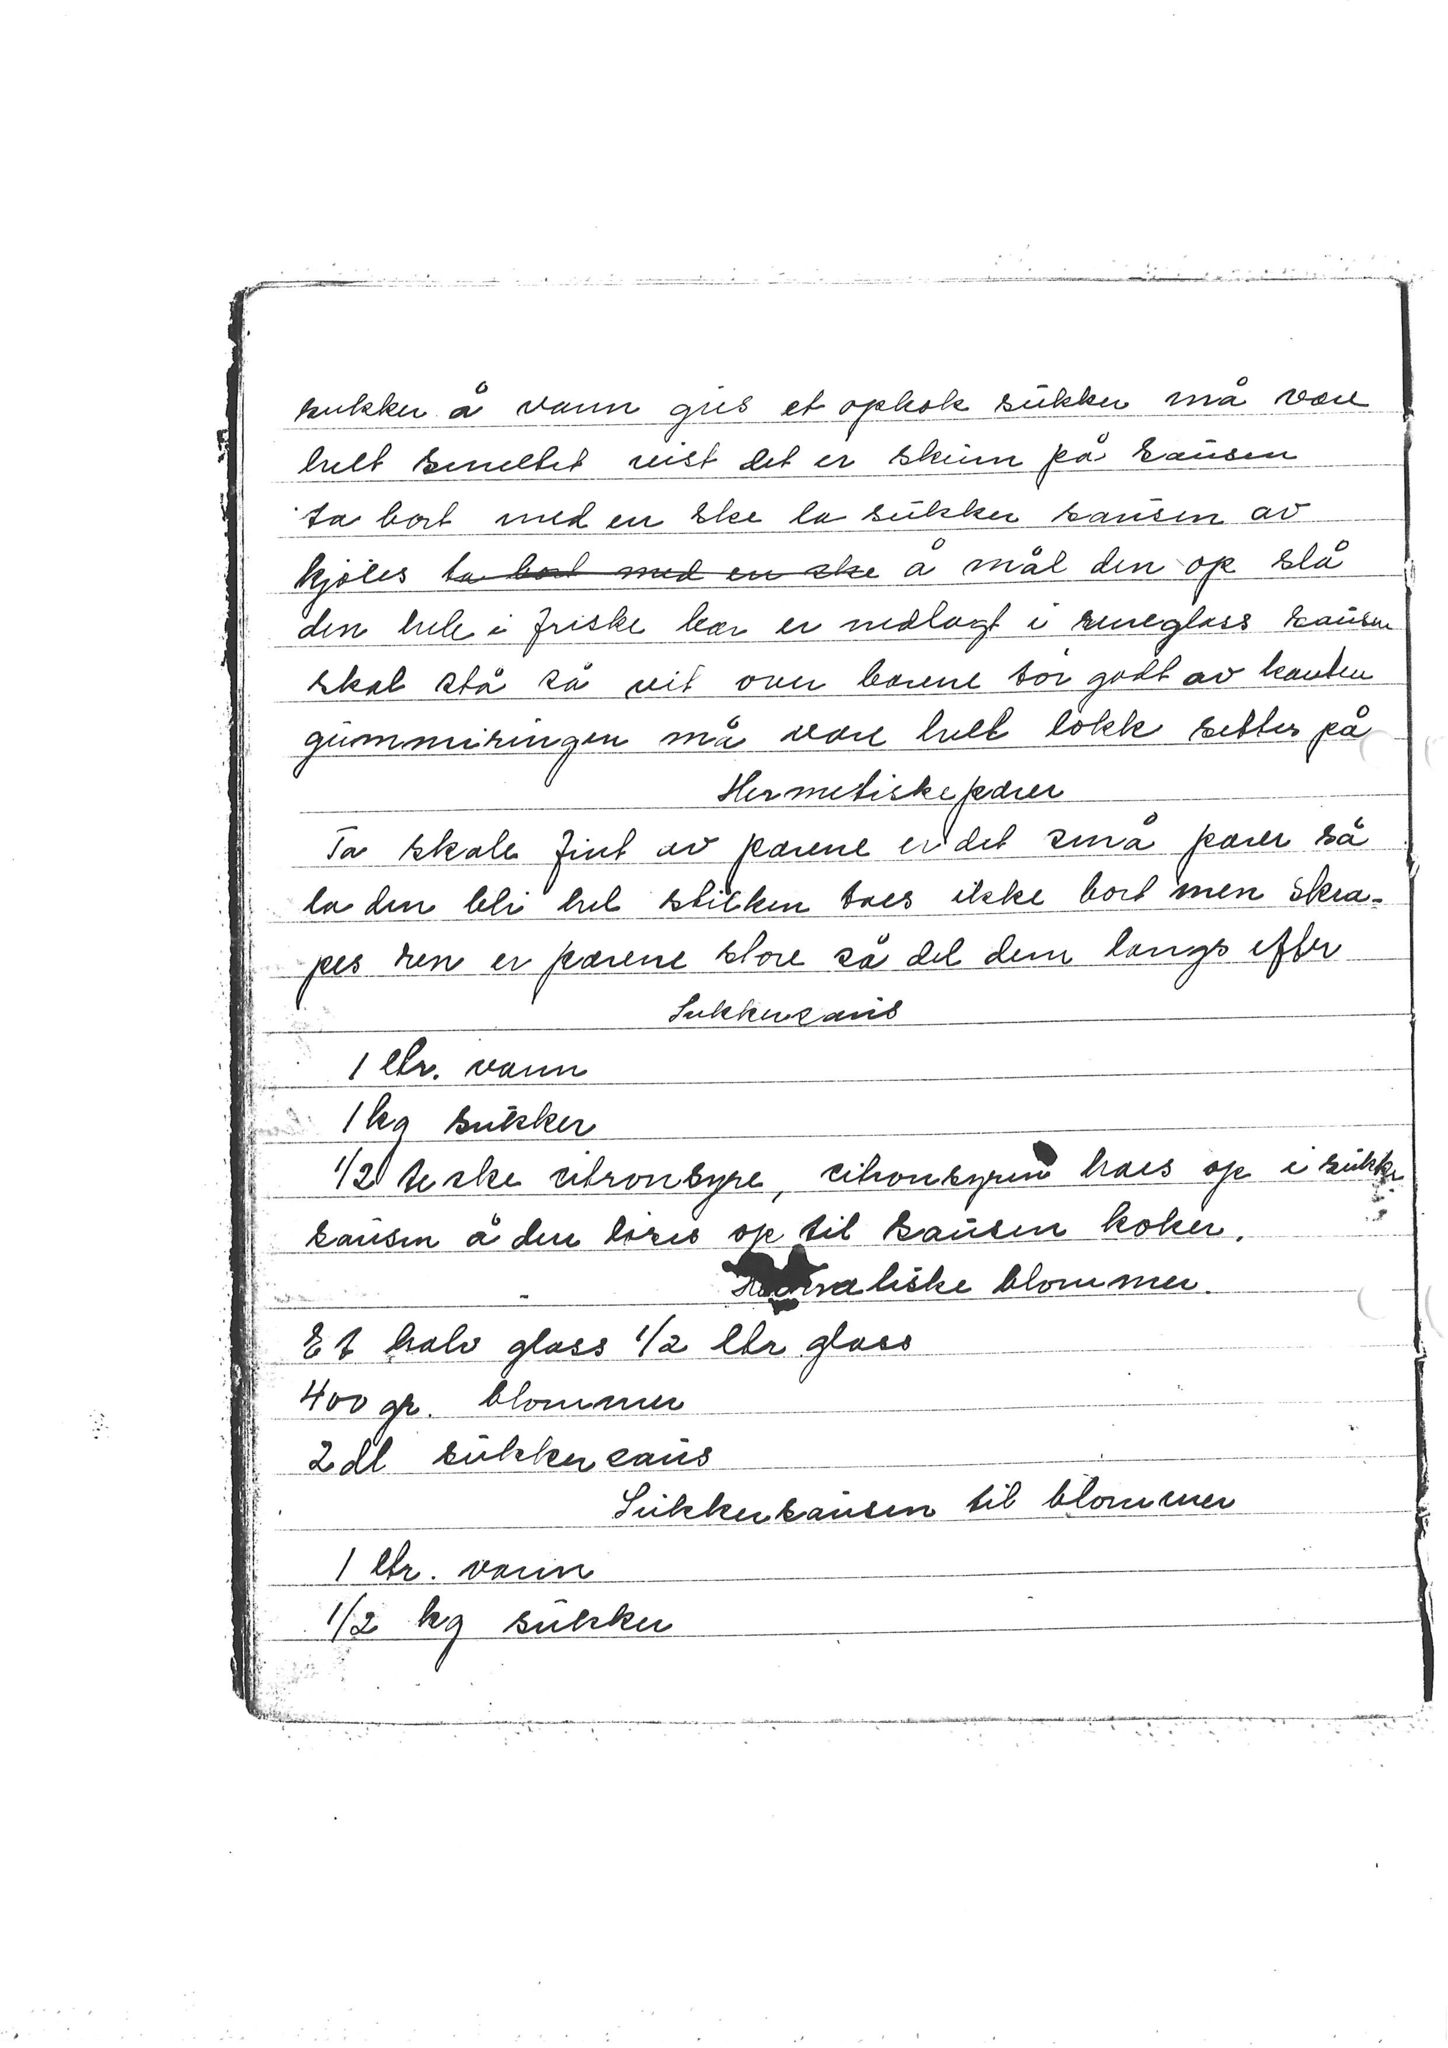 sukker å vann gies et opkok sukker må være
helt smeltet vist det er skum på sausen
ta bort med en ske la sukker sausen av
kjöles ta bort med en ske å mål den op slå
den hele i friske bær er nedlagt i reneglass sausen
skal stå så vit over bærene tör godt av kanten
gummiringen må være helt lokk settes på
Hermetiskepærer
Ta skale fint av pærene er det små pærer så
la den bli hel stilken taes ikke bort men skra-
pes ren er pærene store så del dem langs efter
Sukkersaus
1 ltr. vann
1 kg sukker
1/2 te ske citronsyre, citronsyren haes op i sukker
sausen å den löses op til sausen koker.
blommer.
Et halv glass 1/2 ltr glass
400 gr. blommer
2 dl sukkersaus
Sukkersausen til blommer
1 ltr. vann
1/2 kg sukker